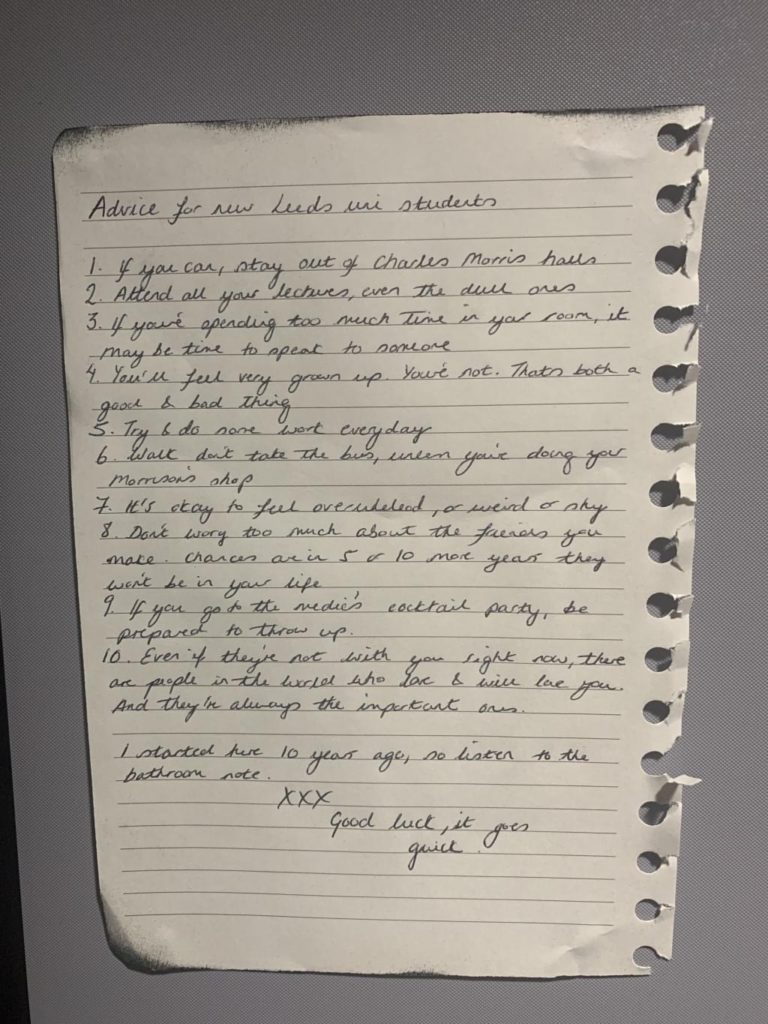 Advice for new Leeds uni students
1. If you can, stay out of Charles Morris halls
2. Attend all your lectures, even the dull ones
3. If you're spending too much time in your room, it
may be time to speak to someone
4. You'll feel very grown up. You're not. Thats both a
good & bad thing
5. Try & do some work everyday
6. Walk don't take the bus, unless you're doing your
Morrison's shop
7. It's okay to feel overwhelmed, or weird or shy
8. Don't worry too much about the friends you
make. Chances are in 5 or 10 more years they
won't be in your life
9. If you go to the medic's cocktail party, be
prepared to throw up.
10. Even if they're not with you right now, there
are people in the world who love & will love you.
And they're always the important ones.
I started here 10 years ago, so listen to the
bathroom note.
XXX
Good luck, it goes
quick.